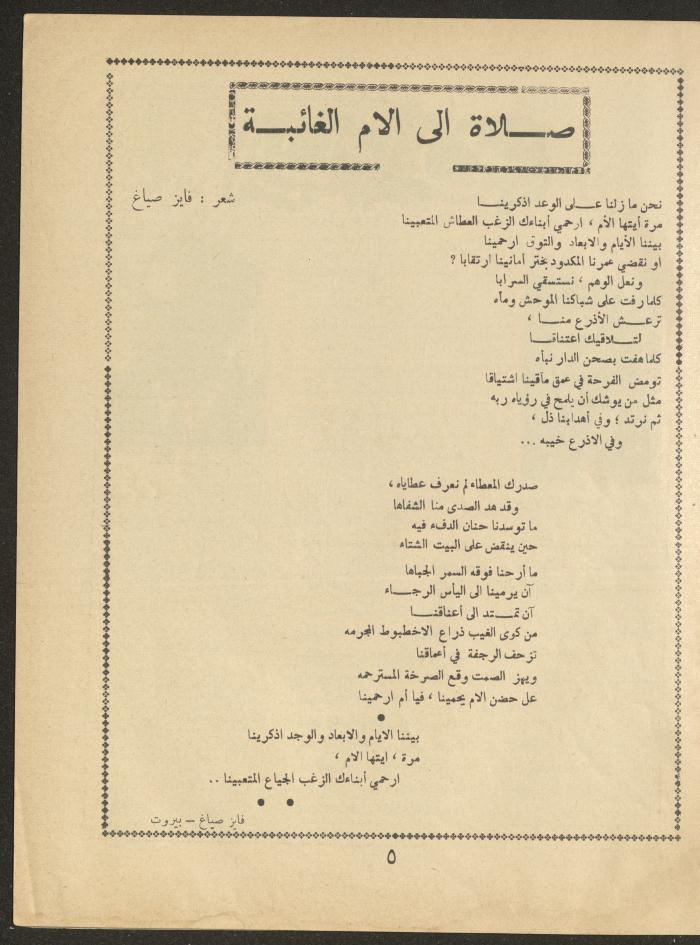 صلاة الى الام الغائبة
شعر : فايز صياغ
نحن ما زلنا على الوعد اذكرينا
مرة أيتها الأم ، ارحمي أبناءك الزغب العطاش المتعبينا
بيننا الأيام والابعاد والتوق ارحمينا
او نقضي عمرنا المكدود نجتر أمانينا ارتقابا ؟
ونعل الوهم ، نستسقي السرابا
كلما رفت على شباكنا الموحش ومأه
ترعش الأذرع منا ،
لتلاقيك اعتناقا
كلما هفت بصحن الدار نبأه
تومض الفرحة في عمق مآقينا اشتياقا
مثل من يوشك أن يلمح في رؤياه ربه
ثم نرتد ؛ وفي أهدابنا ذل ،
وفي الاذرع خيبه ...
صدرك المعطاء لم نعرف عطاياه ،
وقد هد الصدى منا الشفاها
ما توسدنا حنان الدفء فيه
حين ينقض على البيت الشتاء
ما أرحنا فوقه السمر الجباها
آن يرمينا الى اليأس الرجاء
آن تمتد الى أعناقنا
من كوى الغيب ذراع الاخطبوط المجرمه
تزحف الرجفة في أعماقنا
ويهز الصمت وقع الصرخة المسترحمه
عل حضن الام يحمينا ، فيا أم ارحمينا
●
بيننا الايام والابعاد والوجد اذكرينا
مرة ، ايتها الام ،
ارحمي أبناءك الزغب الجياع المتعبينا ..
● ●
فايز صياغ – بيروت
٥